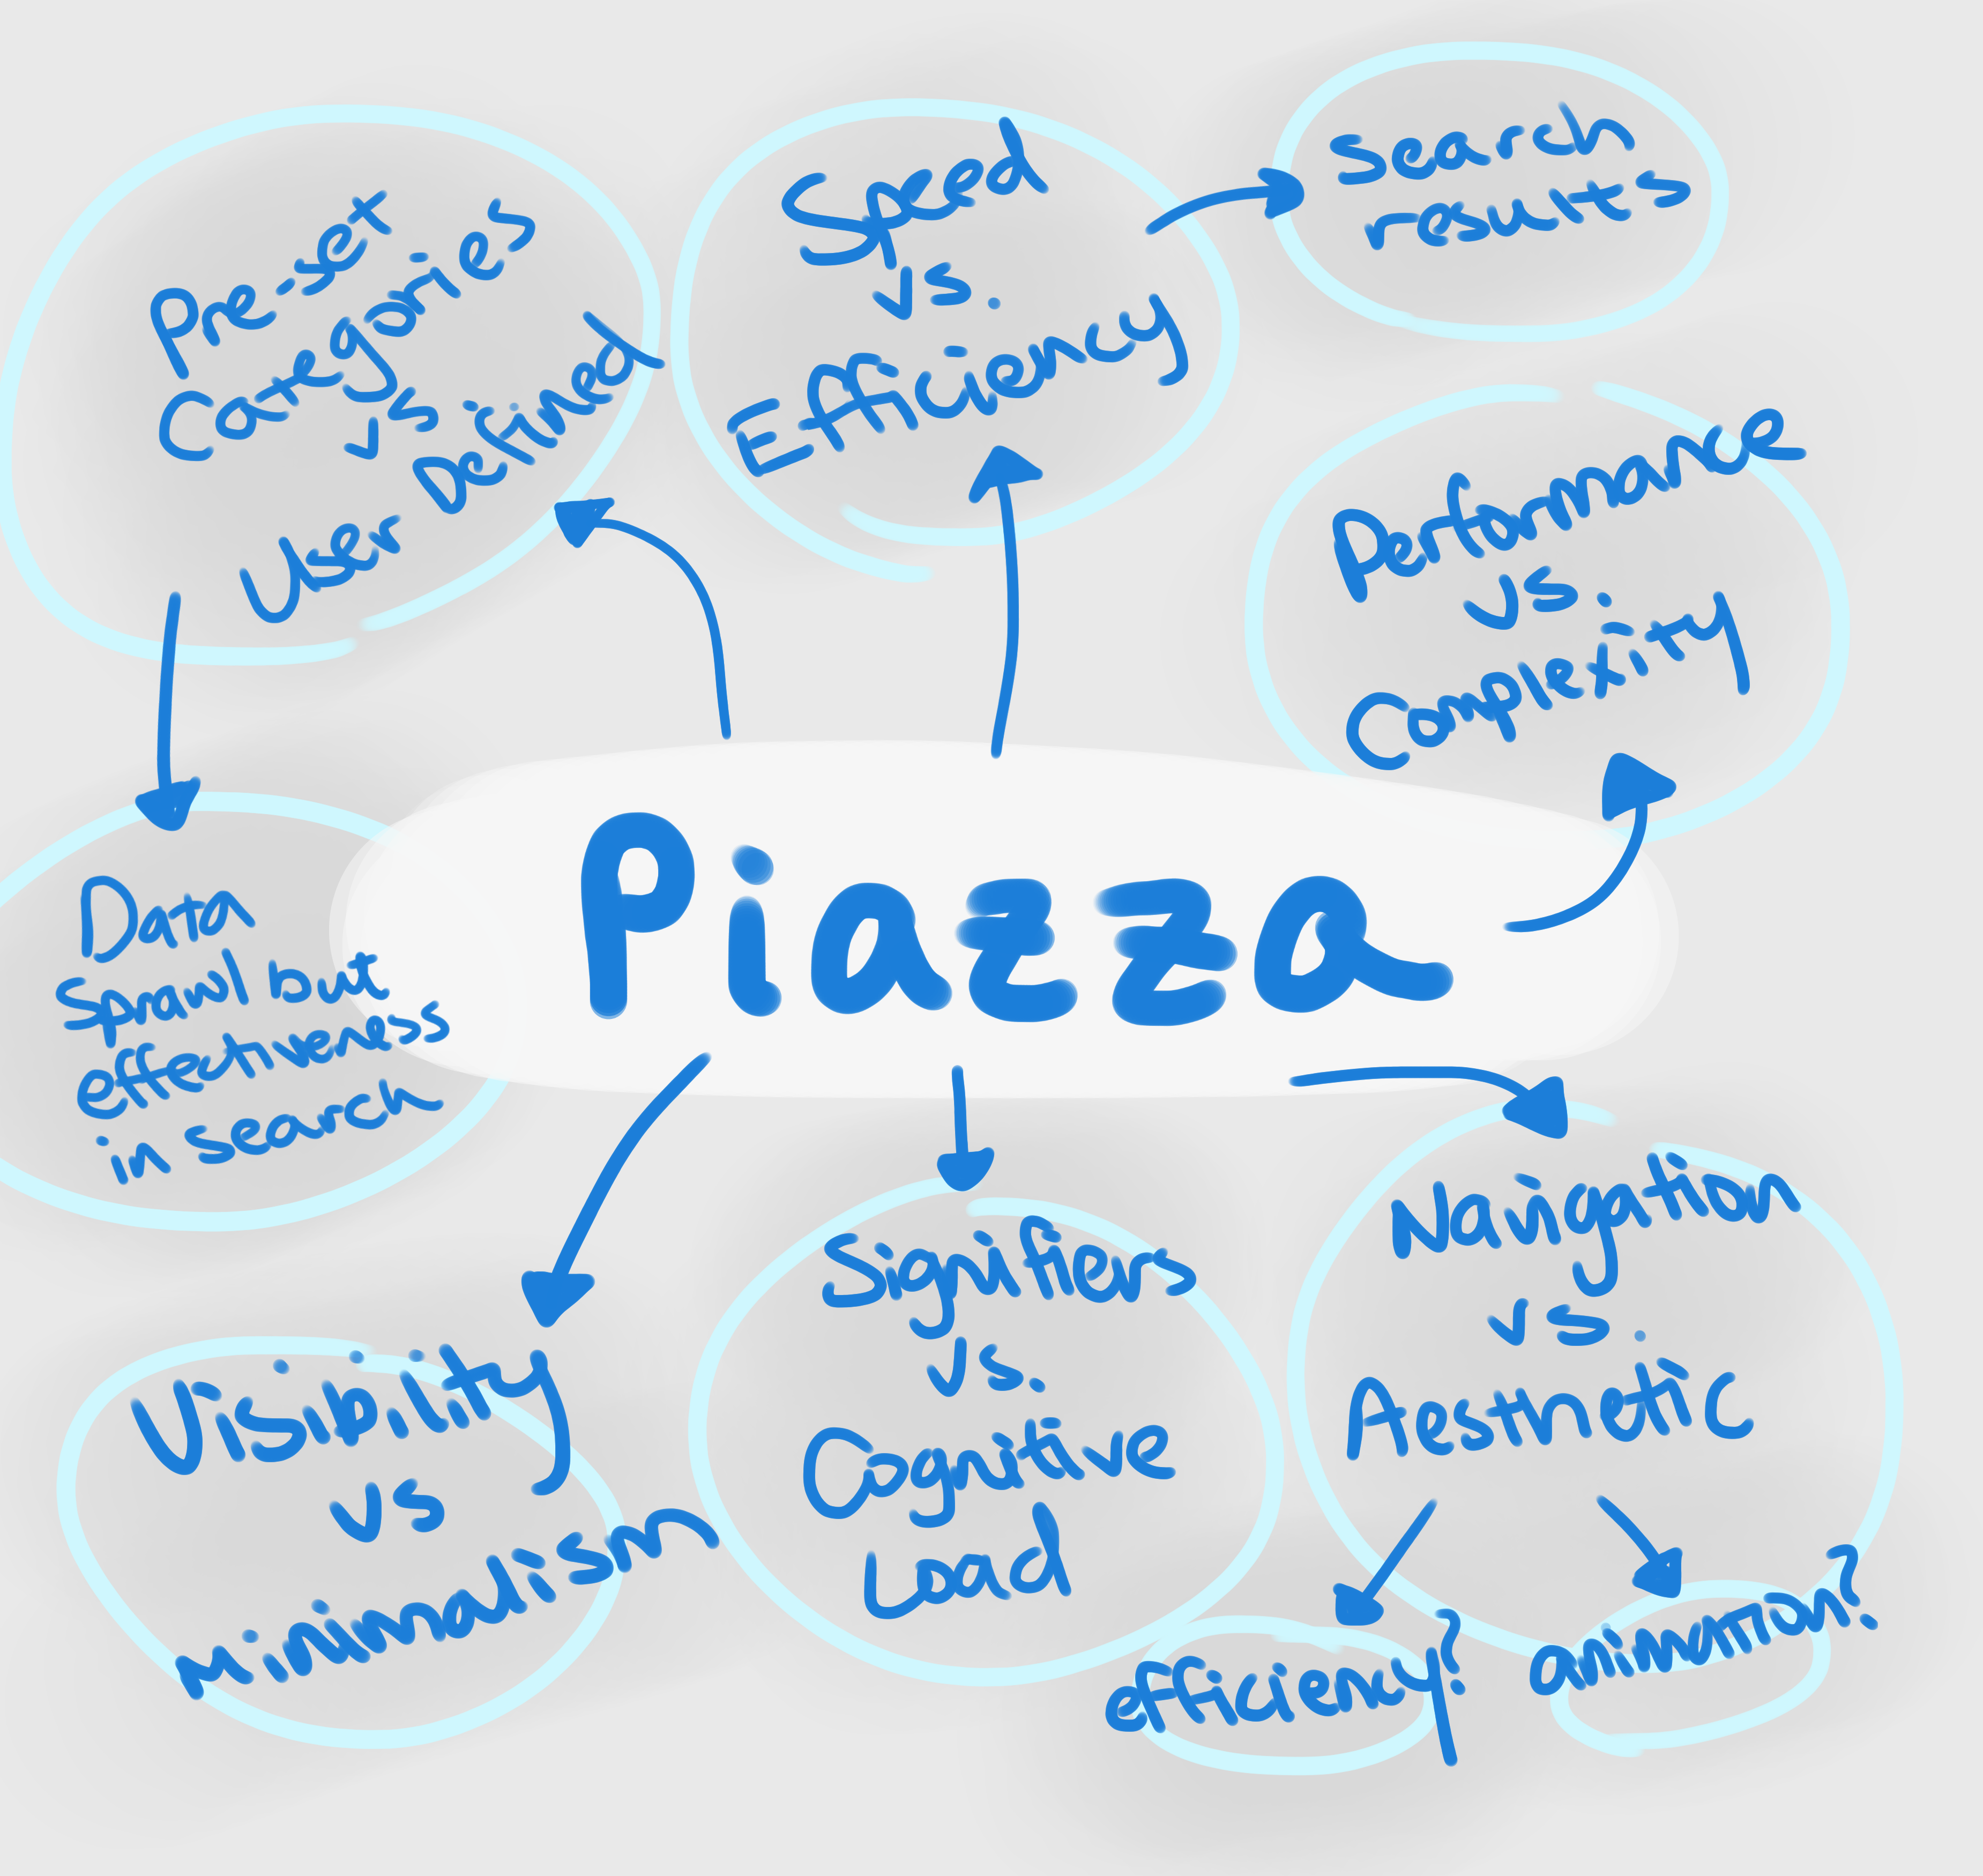 Pre-set
Categories
vs
User Defined
Speed
vs.
Efficiency
search
results
Performance
vs.
Complexity
Piazza
Data
sprawl but
effectiveness
in search
Visibility
vs
Minimalism
Signifiers
vs.
Cognitive
Load
Navigation
vs.
Aesthetic
efficiency?